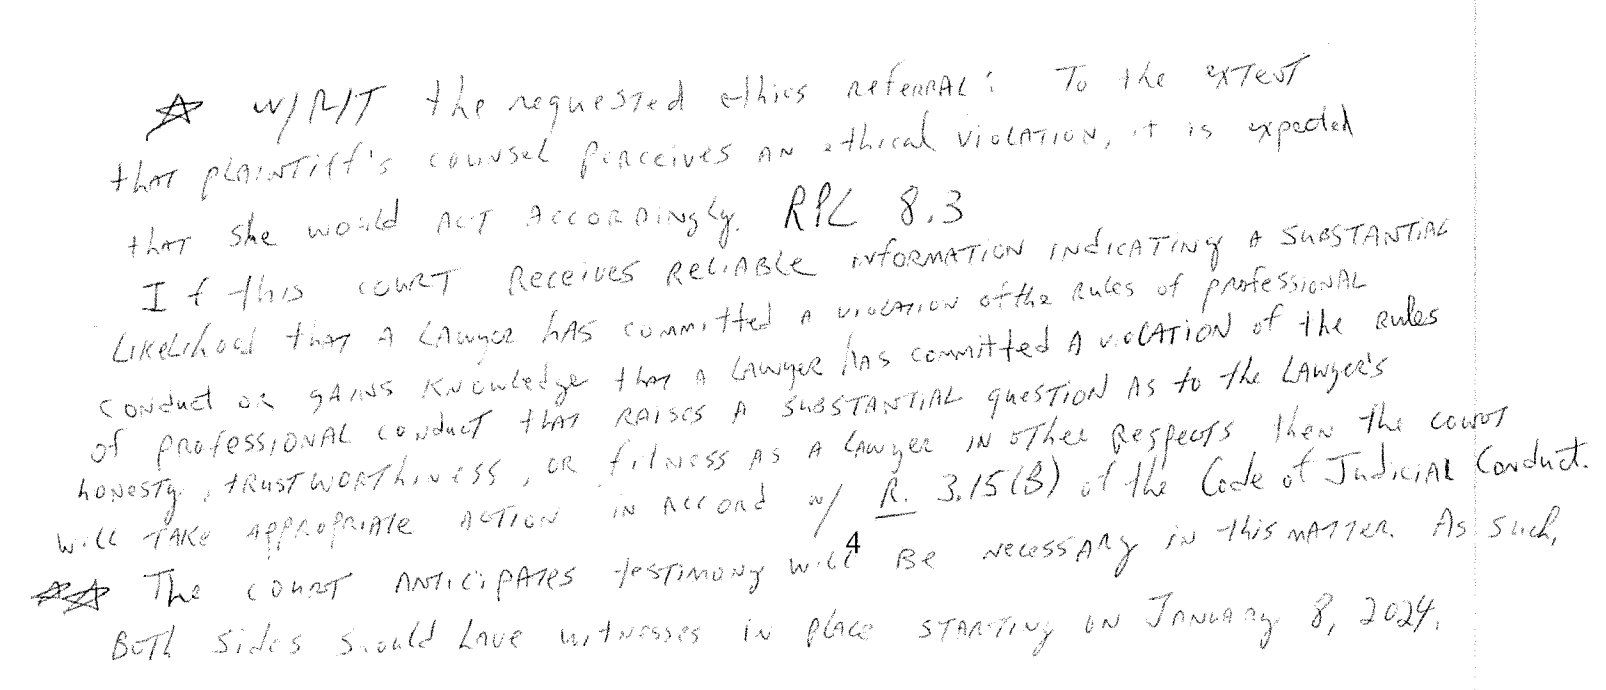 ☆ W/R/T the requested ethics referral: To the extent
that plaintiff's counsel perceives an ethical violation, it is expected
that she would act accordingly. RPC 8.3
If this court receives reliable information indicating a substantial
likelihood that a lawyer has committed a violation of the Rules of professional
conduct or gains knowledge that a lawyer has committed a violation of the Rules
of professional conduct that raises a substantial question as to the lawyer's
honesty, trustworthiness, or fitness as a lawyer in other respects then the court
will take appropriate action in accord w/ R. 3.15(B) of the Code of Judicial Conduct.
4
☆☆ The court anticipates testimony will be necessary in this matter. As such,
Both sides should have witnesses in place starting on January 8, 2024.